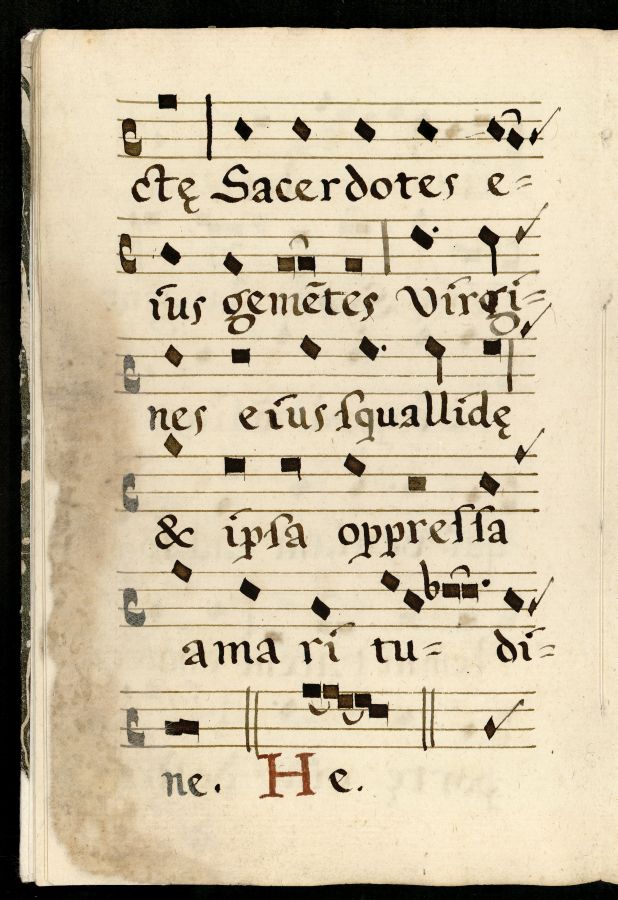 ctę Sacerdotes e=
ius gemētes Virgi=
nes eius squallidę
& ipsa oppressa
ama ri tu= di=
ne. He.